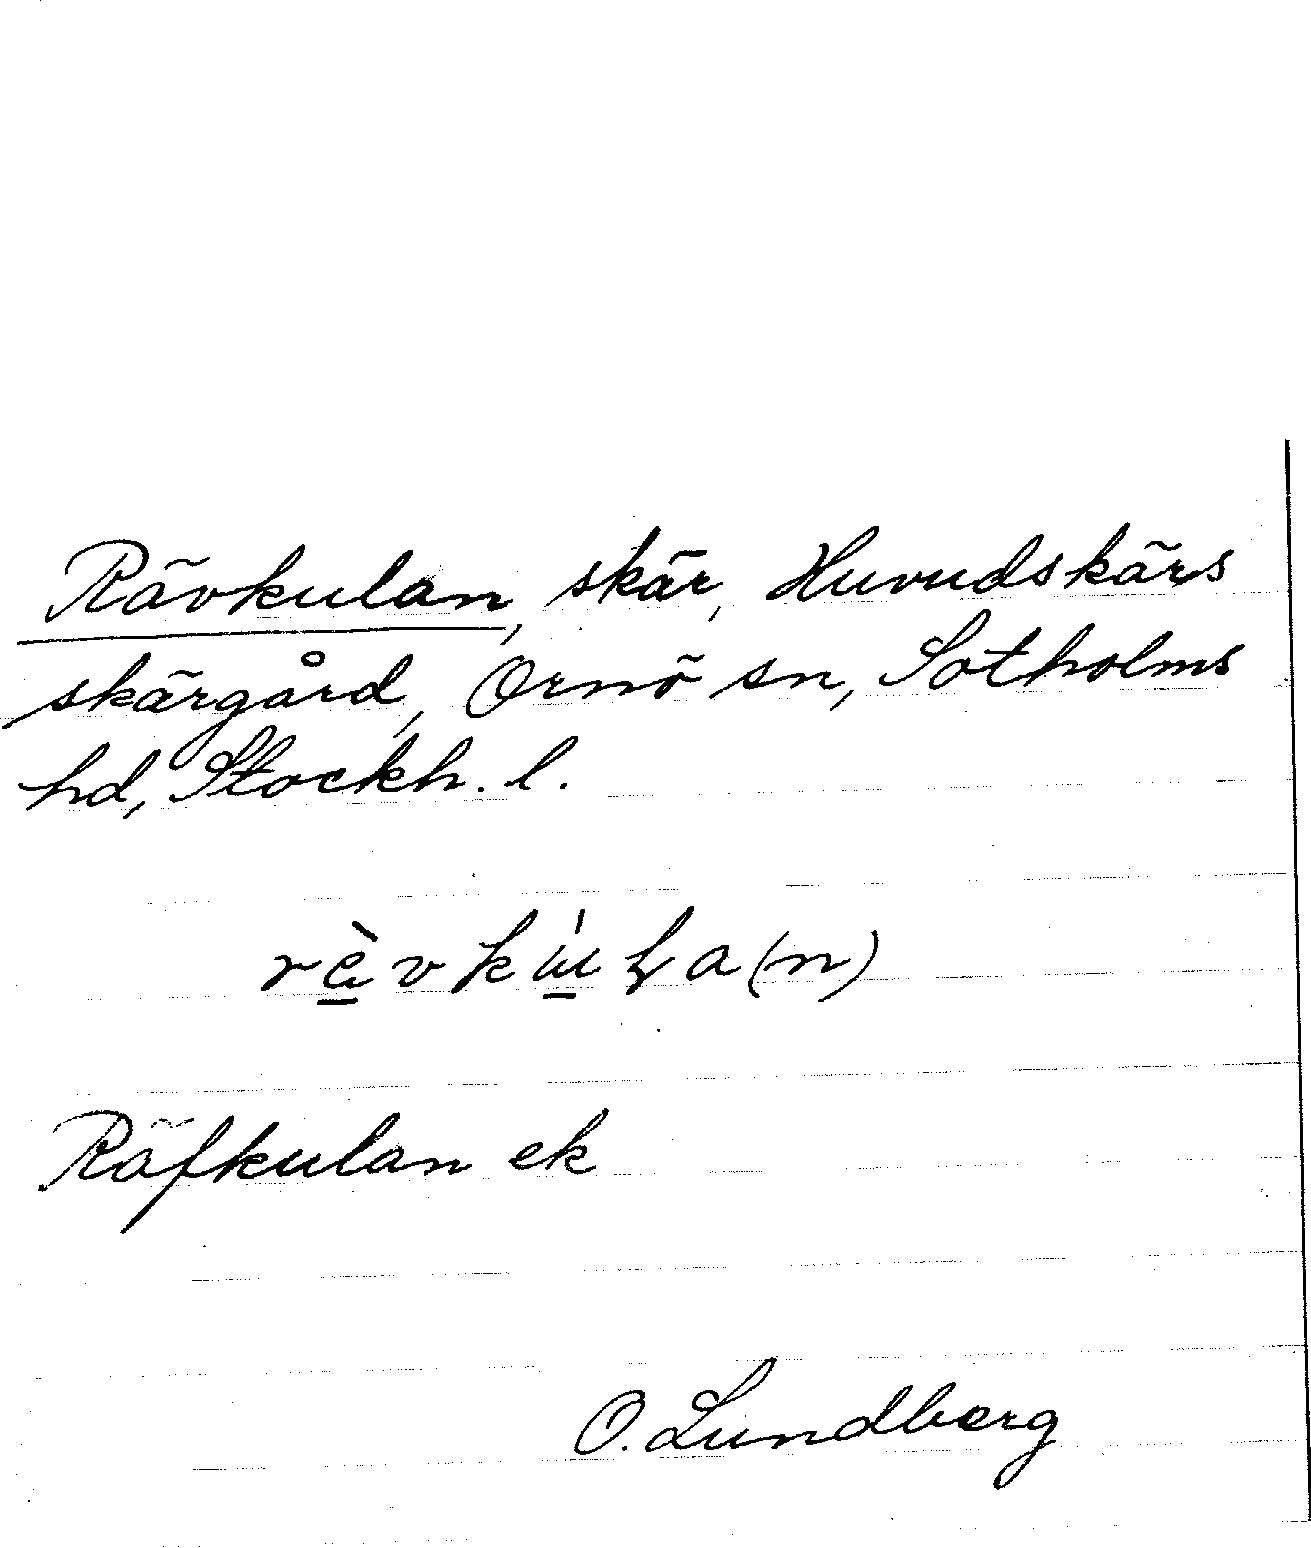 Rävkulan, skär, Huvudskärs
skärgård, Ornö sn, Sotholms
hd, Stockh. l.
Räfkulan ek
O. Lundberg